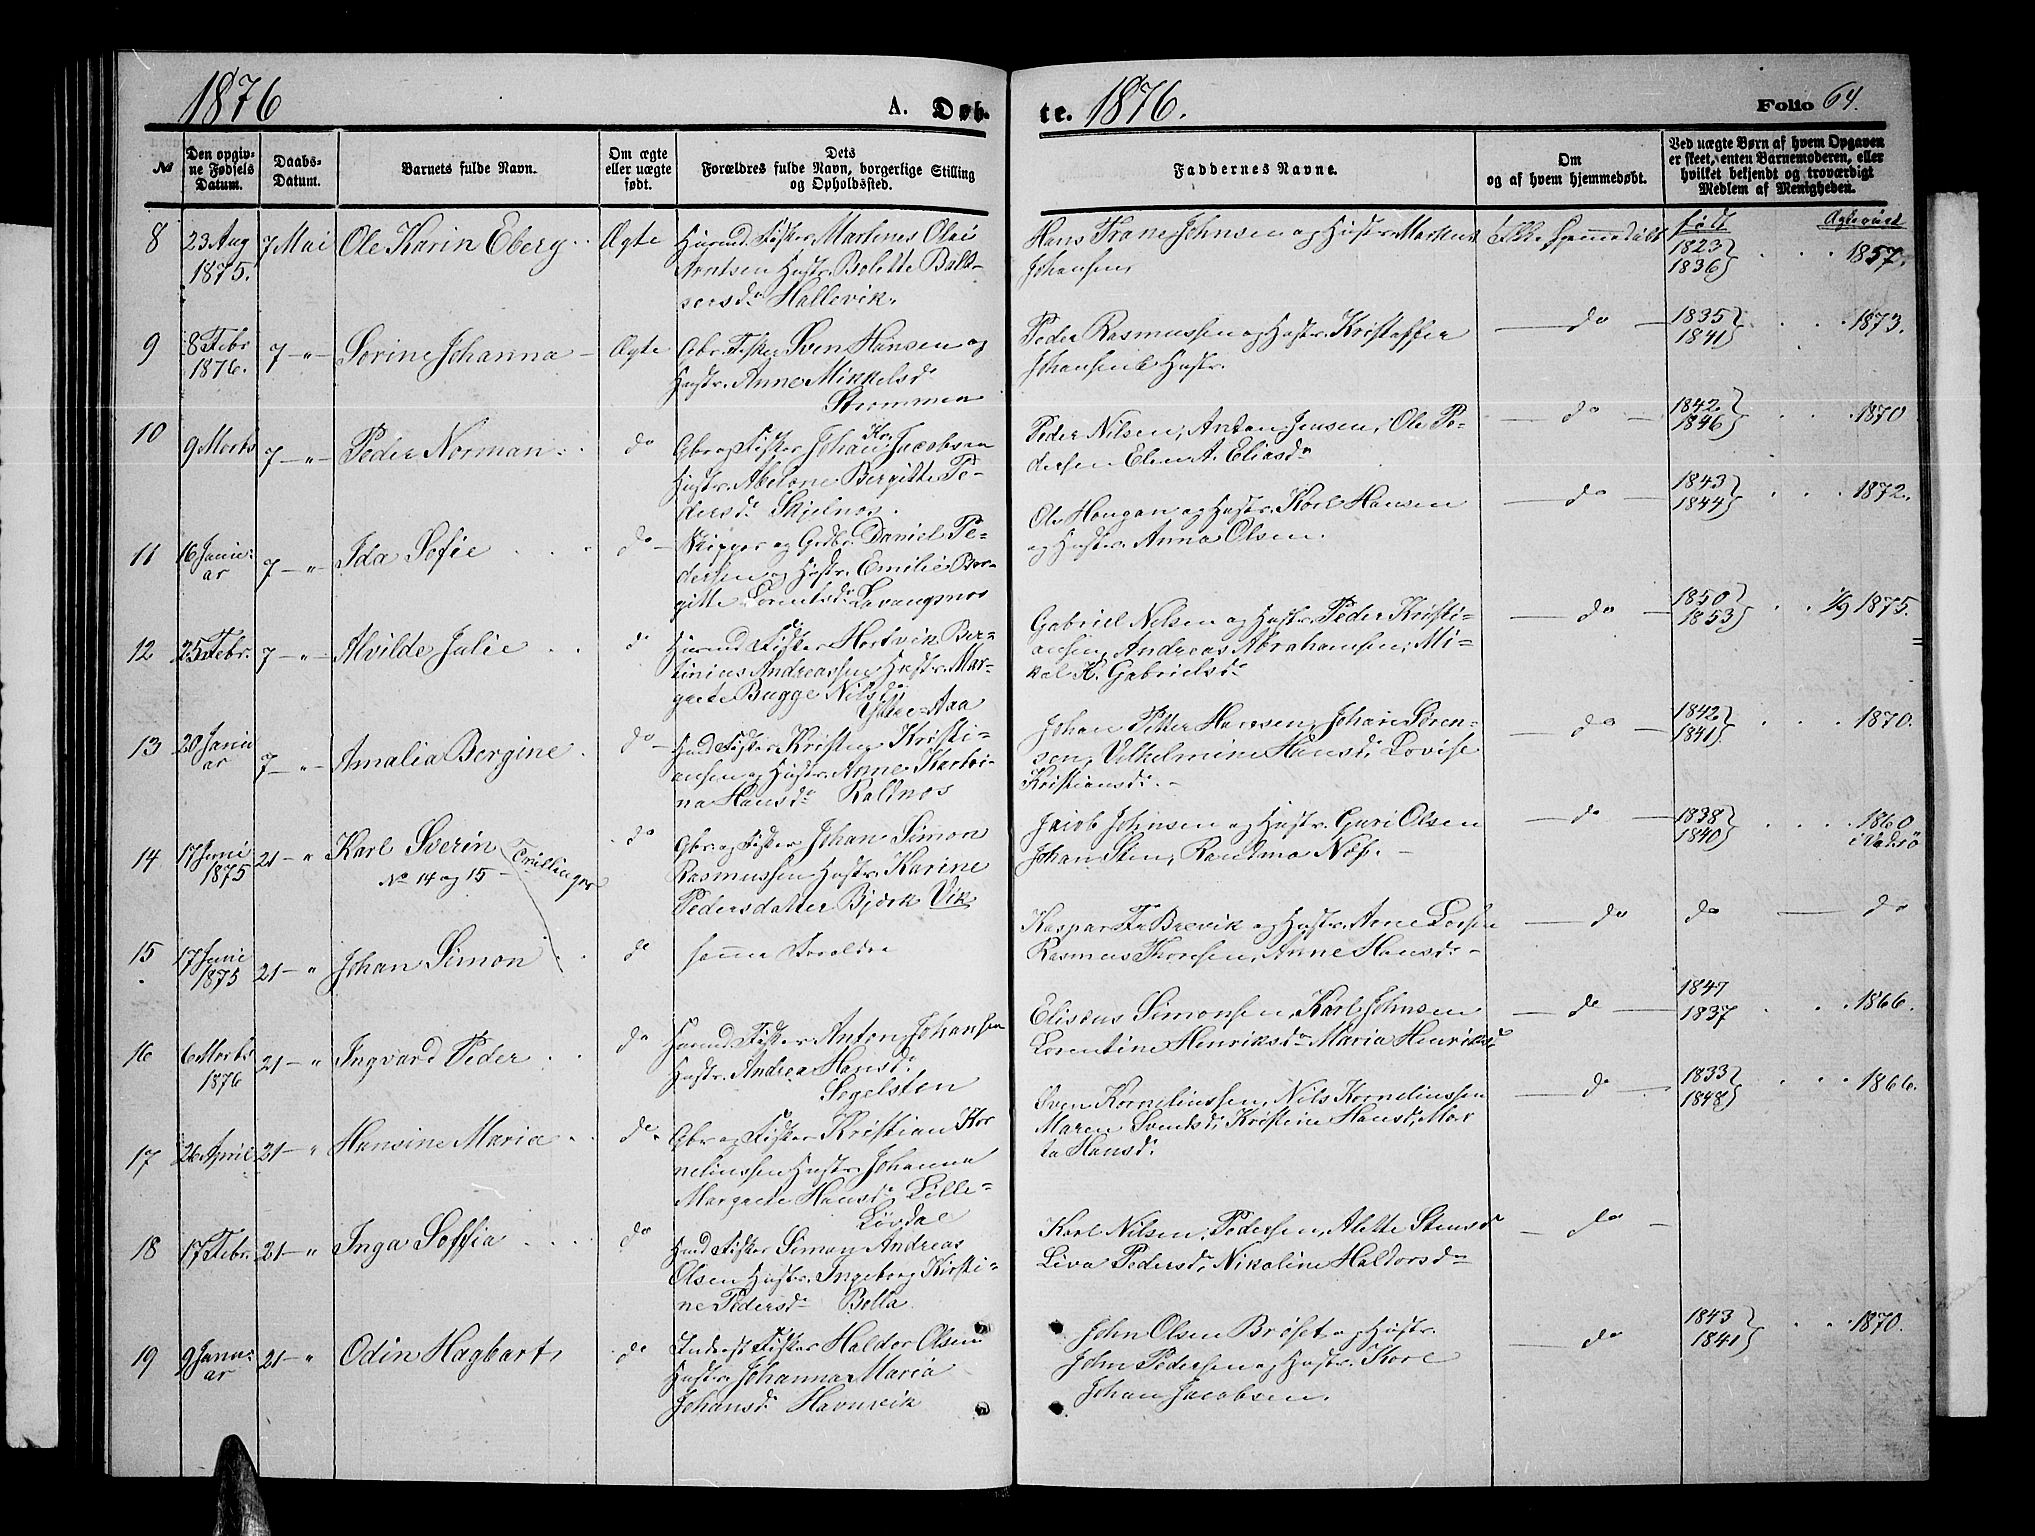 1876
A. Døb-
te. 1876.
Folio 64.
№
Den opgiv-
ne Fødsels
Datum.
Daabs-
Datum.
Barnets fulde Navn.
Om ægte
eller uægte
født.
Dets
Forældres fulde Navn, borgerlige Stilling
og Opholdssted.
Faddernes Navne.
Om
og af hvem hjemmedøbt.
Ved uægte Børn af hvem Opgaven
er skeet, enten Barnemoderen, eller
hvilket bekjendt og troværdigt
Medlem af Menigheden.
født
8
23 Aug
1875.
7 Mai
Ole Karin Eberg
Ægte
Husmd Fisker Martines Olai
Arntsen Hustr. Bolette Balt-
sersd. Hallevik.
Hans Trane Johnsen og Hustr. Markus
Johansen,
Ikke hjemmedøbt
1823
1836
1857.
9
8 Febr
1876.
7 - " -
Sorine Johanna
Ægte
Gbr. Fisker Sven Hansen og
Hustr. Anne Mikkelsd.
Strommen
Peder Rasmussen og Hustr. Kristoffer
Johansen & Hustr.
do
1835
1841
1873.
10
9 Marts
7 - " -
Peder Norman
do
Gbr og Fisker Johan Kr. Jacobsen
Hustr. Abelone Bergitte Pe-
dersd. Skjelnes.
Peder Nilsen, Anton Jensen, Ole Pe-
dersen Elen A. Eliasd.
do
1842
1846
1870
11
16 Janu-
ar
7 - " -
Ida Sofie
do
Skipper og Grdbr. Daniel Pe-
dersen og Hustr. Emilie Ber-
gitte Lorentsd. Lavangsnes
Ole Haugan og Hustr. Karl Hansen
og Hustr. Anna Olsen.
do
1843
1844
1872.
12
25 Febr.
7 - " -
Alvilde Julie
do
Husmd Fisker Hartvik Ber-
tinius Andreassen Hustr. Mar-
grete Bagge Nilsd.
Ytre-Aaa
Gabriel Nilsen og Hustr. Peder Kristi-
ansen, Andreas Abrahamsen, Mi-
kal K. Gabrielsd.
do
1850
1853
1/9 1875.
13
20 Janu
ar
7 - " -
Amalia Bergine
do
Husd Fisker Kristen Kristi-
ansen og Hustr. Anne Karbi-
na Hansd. Kaldnes
Johan Petter Hansen, Johan Søren-
sen, Vilhelmine Hansd. Lovise
Kristiansd.
do
1842
1841
1870.
14
17 Juni
1875
21 - "
Karl Sverin
Nº 14 og 15
Tvillinger
do
Gbr og Fisker Johan Simon
Rasmussen Hustr. Karine
Pedersdatter Bjørk Vik
Jacob Johnsen og Hustr. Guri Olsen
Johan Sten, Randma Næs.
do
1838
1840
1860
i Vadsø
15
17 Juni
1875
21 - "
Johan Simon
do
samme Forældre
Kaspar Fr Brevik og Hustr. Arne Larsen
Rasmus Thoresen, Anne Hansd.
do
do
do
16
6 Marts
1876
21 - "
Ingvard Peder
do
Husmd. Fisker Anton Johansen
Hustr. Andrea Hansd.
Segelsten
Eliseus Simonsen, Karl Johnsen
Lorentine Henriksd. Maria Henriksd.
do
1847
1837
1866.
17
26 April
21 - "
Hansine Maria
do
Gbr og Fisker Kristian Kor
neliussen Hustr. Johanna
Margrete Hansd. Lille-
Løvdal
Sven Korneliussen, Nils Korneliussen
Maren Svendsd, Kristine Hansd. Mar
ta Hansd.
do
1833
1848
1866.
18
17 Febr.
21 - "
Inga Soffia
do
Husd Fisker Simon Andreas
Olsen Hustr. Ingeborg Kirsti-
ne Pedersd. Bolla.
Karl Nilsen, Pedersen, Alette Stensd
Liva Pedersd, Nikoline Haldorsd.
do
19
9 Janu-
ar
21 - "
Odin Hagbart,
do
Fisker Haldor Olsen
Hustr. Johanna Maria
Johansd. Havnvik
John Olsen Brøset og Hustr.
John Pedersen og Hustr. Kare
Johan Jacobsen.
do
1843
1841
1870.